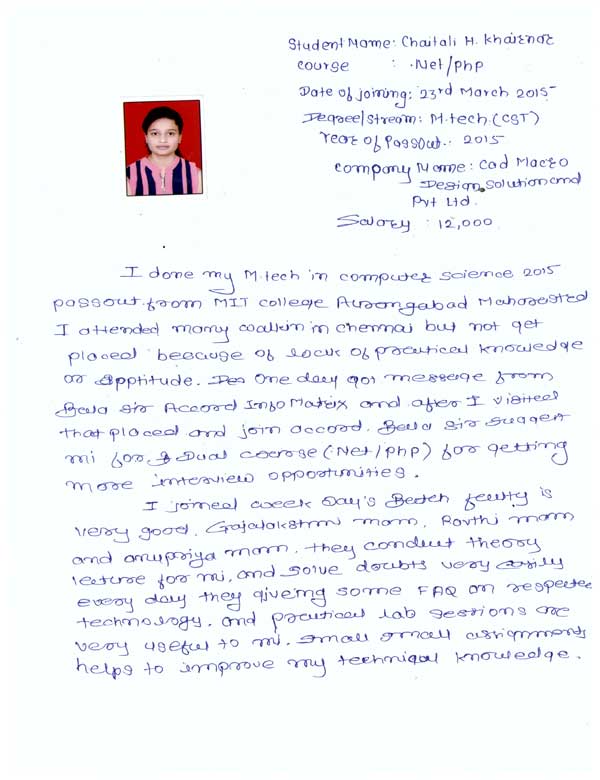 Student Name: Chaitali H. Khairnar
course : .Net/php
Date of joining: 23rd March 2015
Degree/Stream: M.tech.(CST)
Year of Passout.: 2015
Company Name: Cad Macro
Design Solution
Pvt Ltd.
Salary : 12,000
I done my M.tech in computer science 2015
passout from MIT college Aurangabad
I attended many walkin in chennai but not get
placed because of lack of practical knowledge
or apptitude. One day got message from
Bala sir Accord Info Matrix and after I visited
that placed and join accord. Bala sir suggest
mi for Dual course (.Net/php) for getting
more interview opportunities.
I joined week Day's Batch faculty is
very good. Gajalakshmi mam, Revthi mam
and anupriya mam. they conduct theory
lecture for mi, and solve doubts very easily
every day they giveing some FAQ on respected
technology. and practical lab sessions are
very useful to mi. small small assignments
helps to improve my technical knowledge.